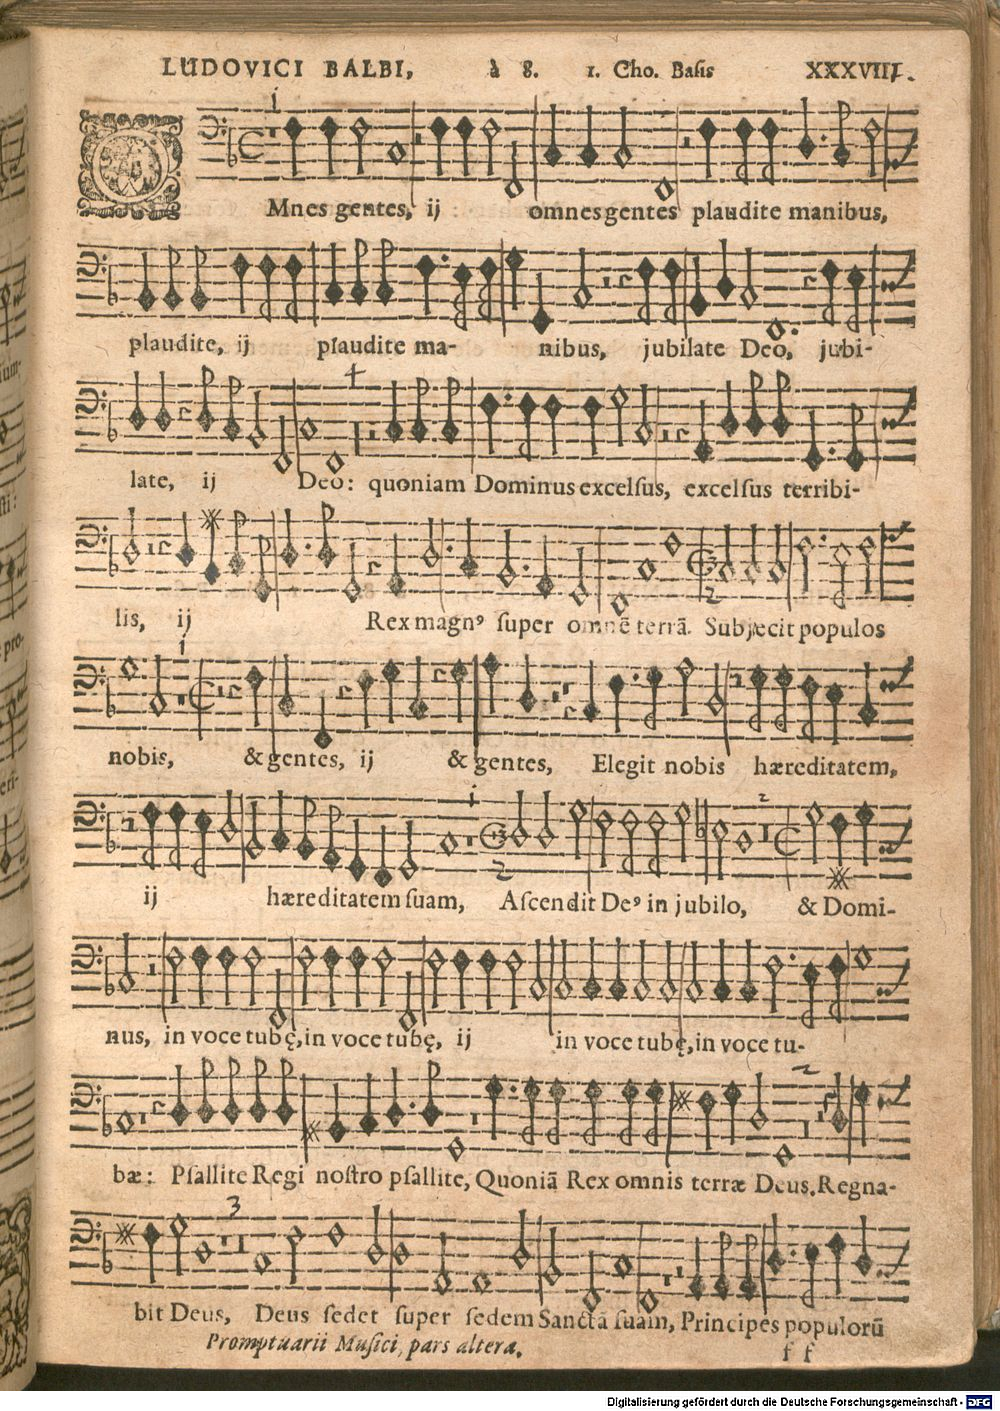 LUDOVICI BALBI, à 8. 1. Cho. Baſis XXXVIII.
OMnes gentes, ij omnes gentes plaudite manibus,
plaudite, ij plaudite ma- nibus, jubilate Deo, jubi-
late, ij Deo: quoniam Dominus excelſus, excelſus terribi-
lis, ij Rex magnꝰ ſuper omnē terrā. Subjecit populos
nobis, & gentes, ij & gentes, Elegit nobis hæreditatem,
ij hæreditatem ſuam, Aſcendit Deꝰ in jubilo, & Domi-
nus, in voce tubę, in voce tubę, ij in voce tubę, in voce tu-
bæ: Pſallite Regi noſtro pſallite, Quoniā Rex omnis terræ Deus. Regna-
bit Deus, Deus ſedet ſuper ſedem Sanctā ſuam, Principes populorū
Promptuarii Muſici, pars altera.
f f
Digitalisierung gefördert durch die Deutsche Forschungsgemeinschaft - DFG